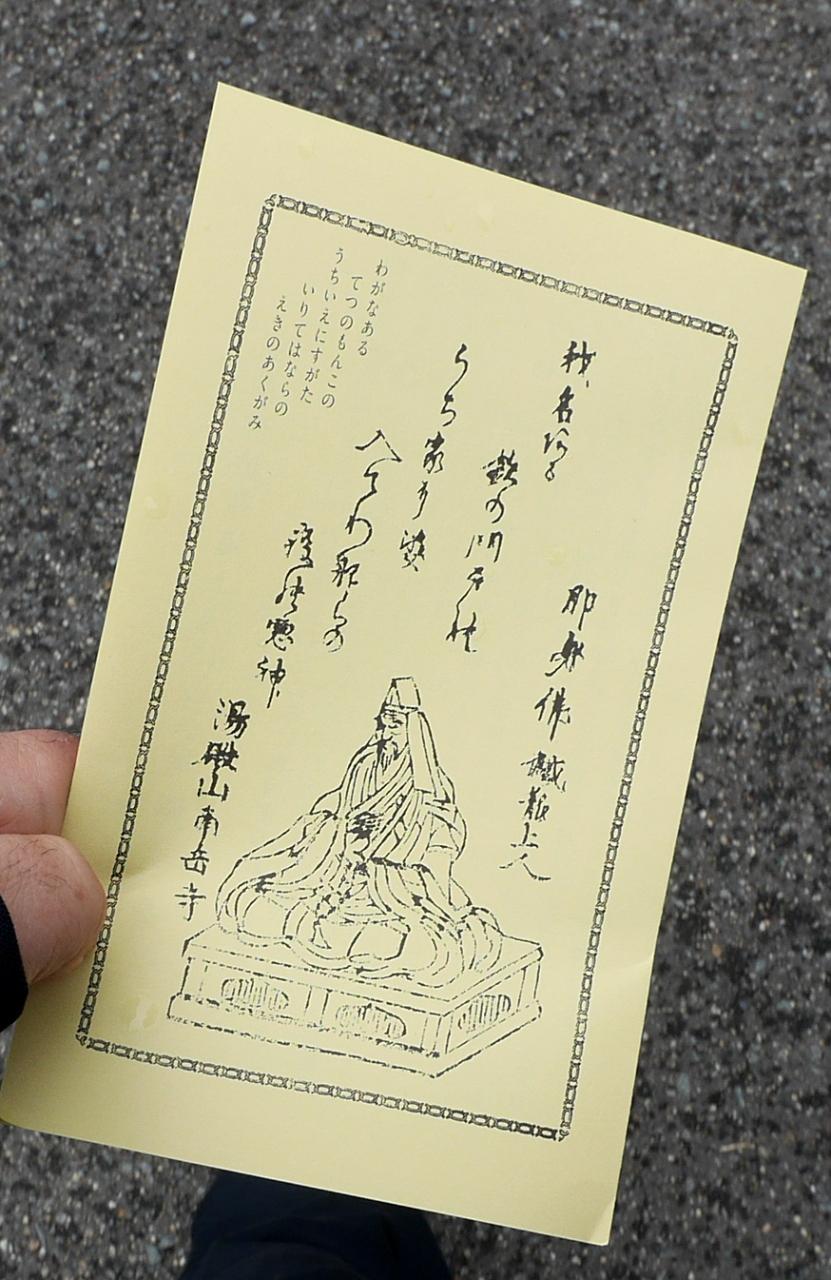 我名ある
鉄の門戸
即身佛鐵龍上人
うち家 姿
入てわ那らの
疫 悪神
湯殿山南岳寺
わがなある
てつのもんこの
うちいえにすがた
いりてはならの
えきのあくがみ